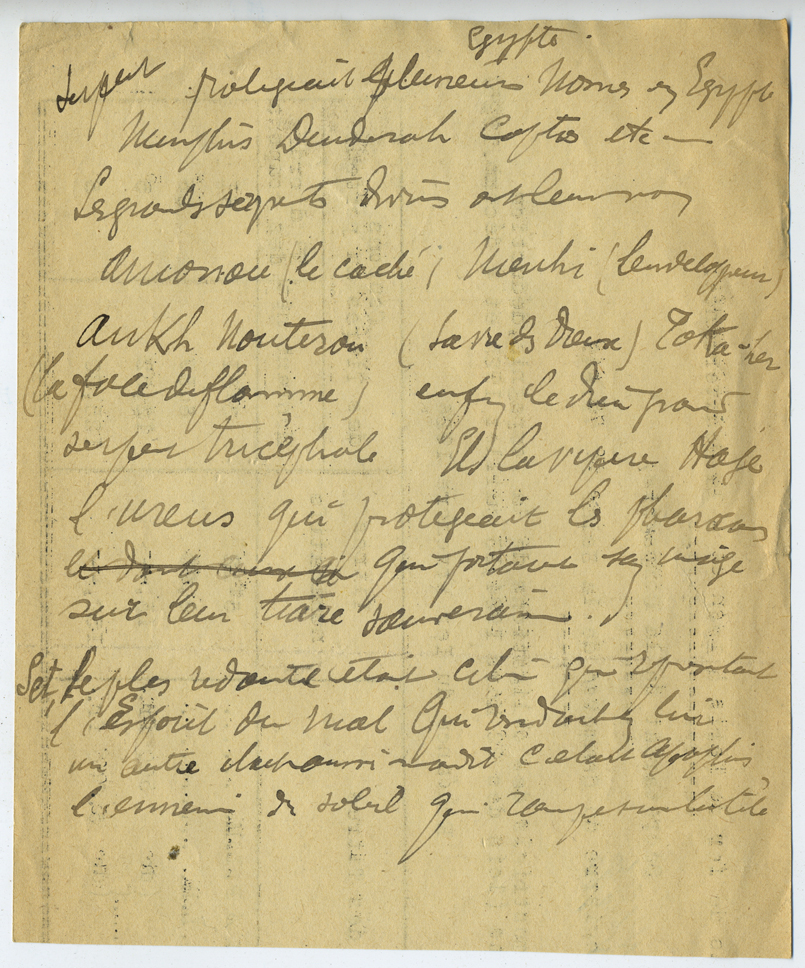 Egypte.
serpent protegeait plusieurs Nomes en Egypte
Memphis Denderah Coptos etc —
Les grands serpents divins ont leur nom
Amonou (le caché) Menhi (l'enveloppeur)
Ankh Nouterou (la vie des dieux) Toka-her
(la face de flamme) enfin le dieu grand
serpent tricéphale Et la vipere Haje
l'ureus qui protegeait les pharaons
qui portaient son image
sur leur tiare souveraine.
Set le plus redouté etait celui qui
l'Esprit du mal
un autre aussi maudit c'etait Apophis
l'ennemi du soleil qui rampe sur